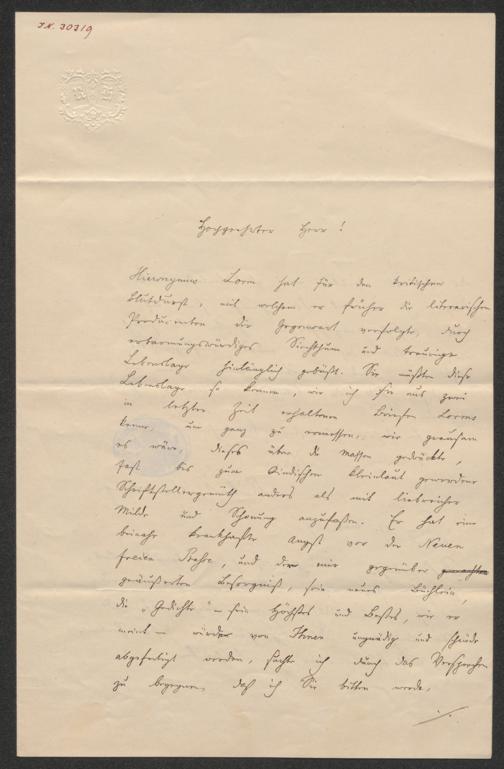 I.N. 30319
Hochgeehrter Herr!
Hieronymus Lorm hat für den kritischen
Blutdurst, mit welchem er früher die literarischen
Producenten der Gegenwart verfolgte, durch
erbarmungswürdiges Siechthum und traurige
Lebenslage hinlänglich gebüßt. Sie müßten diese
Lebenslage so kennen, wie ich sie aus zwei
in letzter Zeit erhaltenen Briefen Lorms
kenne, um ganz zu ermessen, wie grausam
es wäre, dieses über die Massen gedrückte,
fast bis zum Kindischen kleinlaut gewordene
Schriftstellergemüth anders als mit liebreicher
Milde und Schonung anzufassen. Er hat eine
beinahe krankhafte Angst vor der Neuen
freien Presse, und der mir gegenüber
geäußerten Besorgniß, sein neues Büchlein,
die „Gedichte" – sein Höchstes und Bestes, wie er
meint – würde von Ihnen ungnädig und schnöde
abgefertigt werden, suchte ich durch das Versprechen
zu begegnen, daß ich Sie bitten werde,